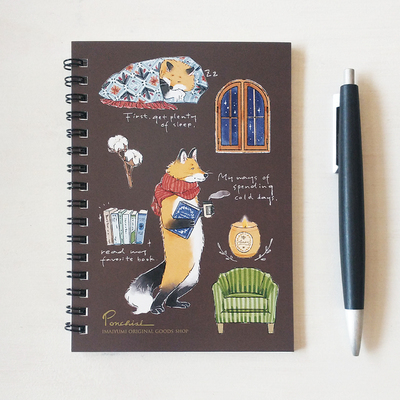 Zz
First, get plenty
of sleep.
My ways of
spending
cold days.
read my
favorite book.
Ponchise
IMAIYUMI ORIGINAL GOODS SHOP